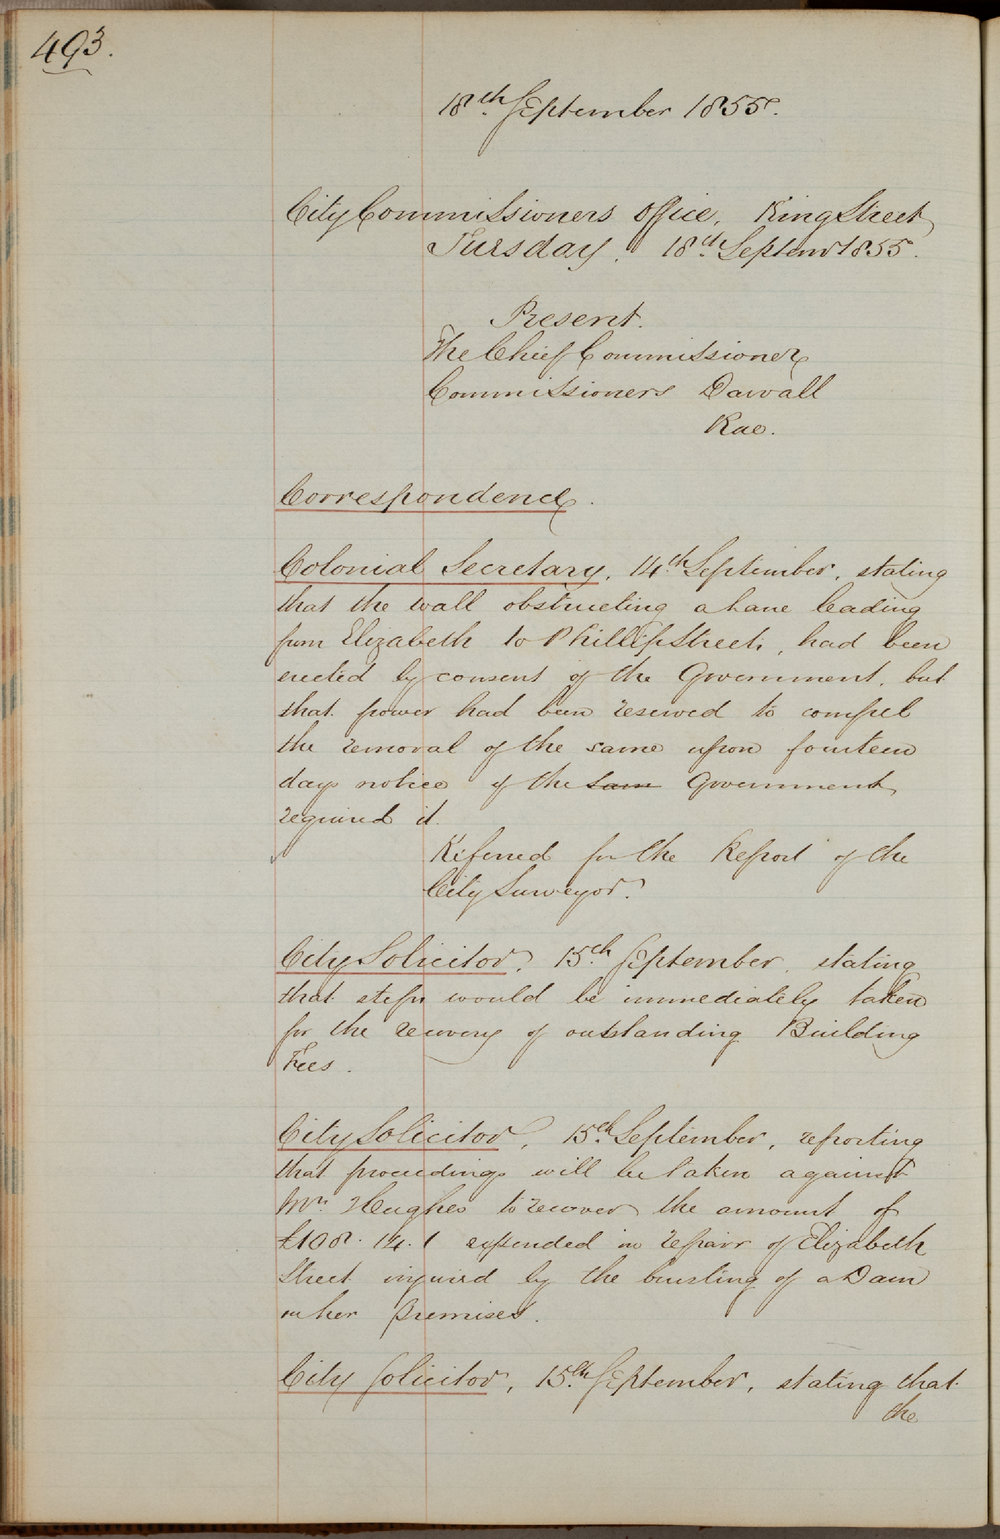 493.
18th September 1855.
City Commissioners Office, King Street
Tuesday, 18th Septemr 1855.
Present.
The Chief Commissioner
Commissioners Darvall
Rae.
Correspondence.
Colonial Secretary, 14th September, stating
that the wall obstructing a lane leading
from Elizabeth to Phillip Streets, had been
erected by consent of the Government, but
that power had been reserved to compel
the removal of the same upon fourteen
days notice if the same Government
required it.
Referred for the Report of the
City Surveyor.
City Solicitor, 15th September, stating
that steps would be immediately taken
for the recovery of outstanding Building
Fees.
City Solicitor, 15th September, reporting
that proceedings will be taken against
Mrs Hughes to recover the amount of
£108. 14. 1 expended in repairs of Elizabeth
Street injured by the bursting of a Dam
on her premises.
City Solicitor, 15th September, stating that
the